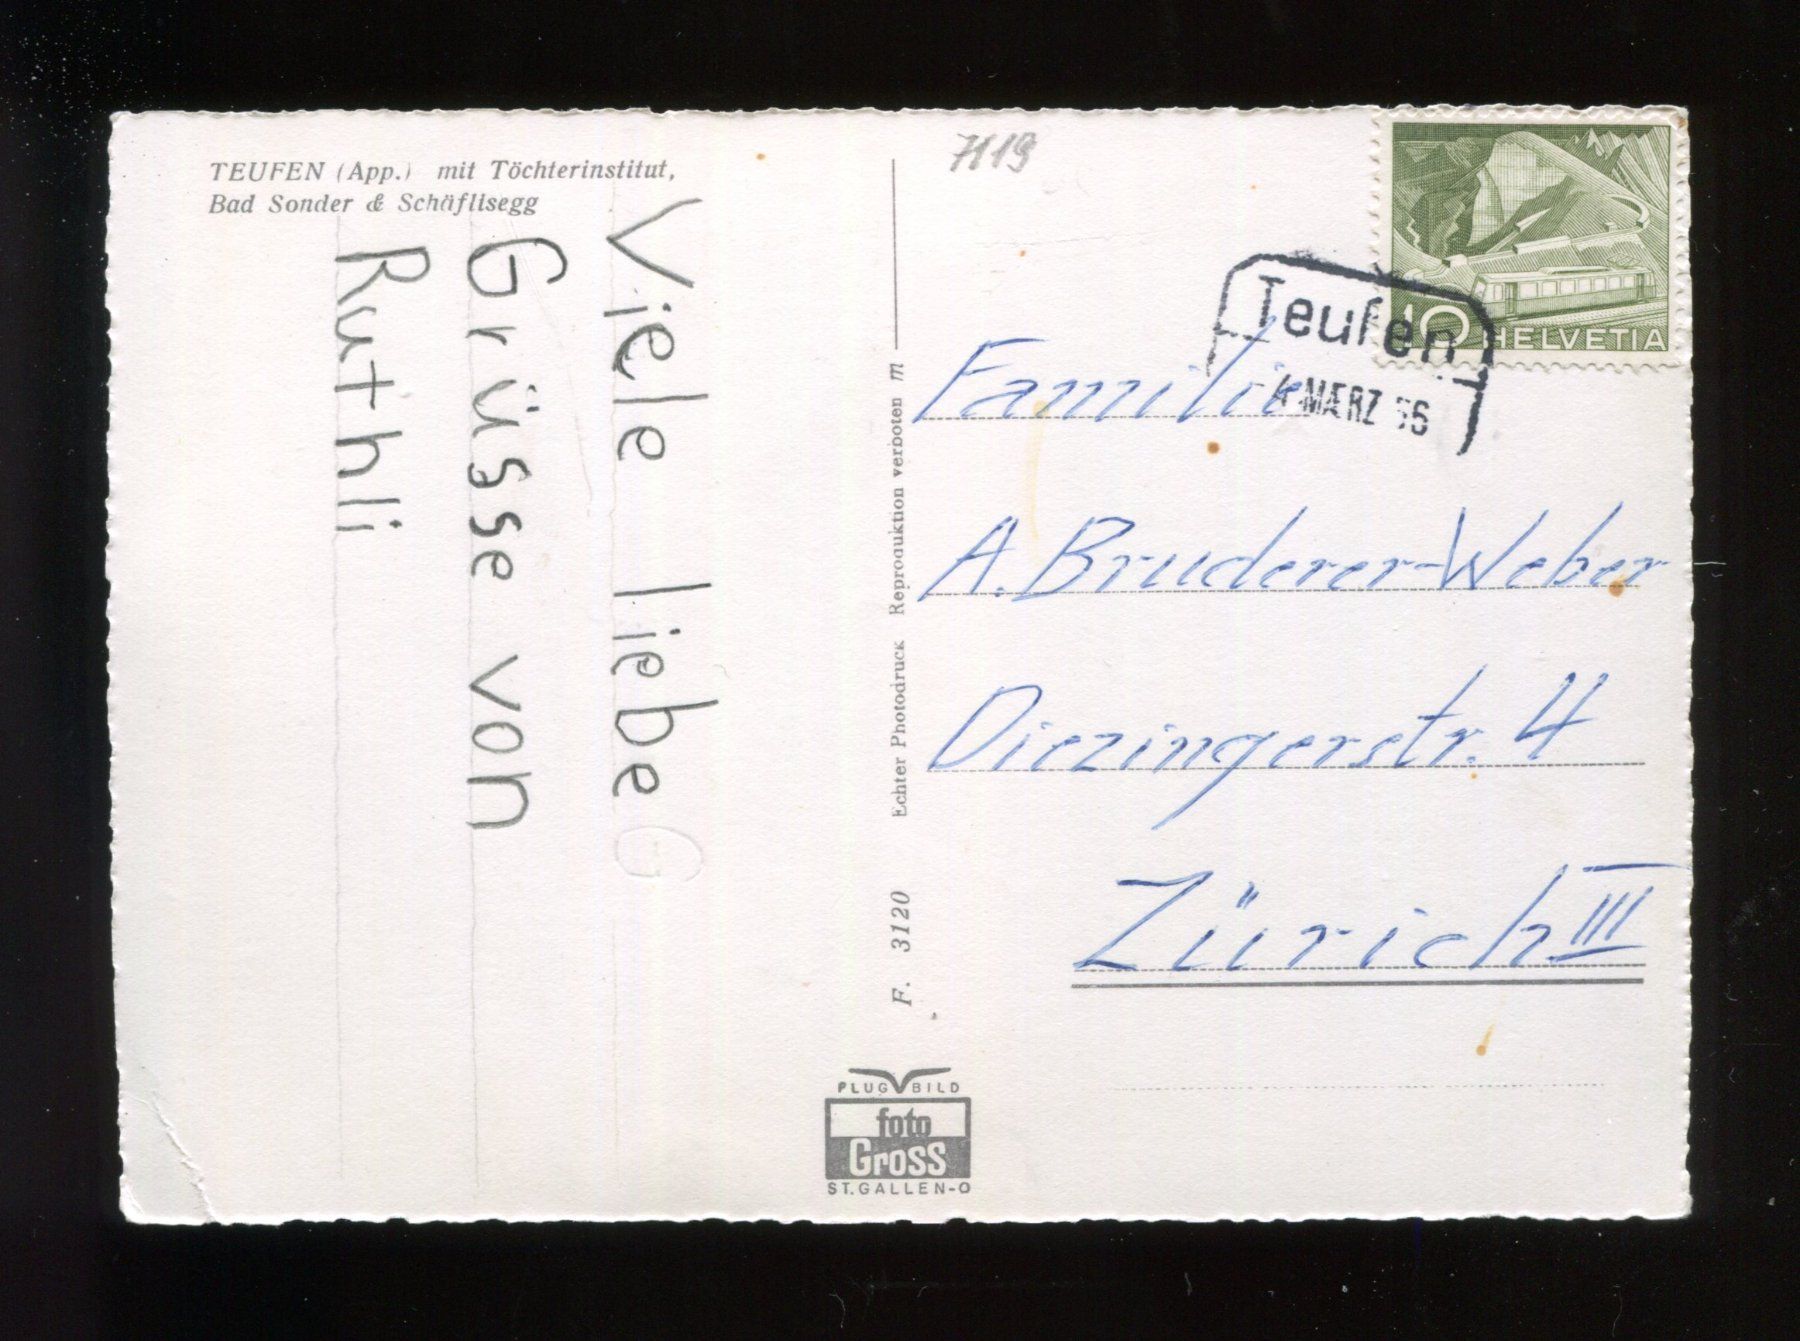 TEUFEN (App.) mit Töchterinstitut,
Bad Sonder & Schäflisegg
Viele liebe
Grüsse von
Ruthli
F. 3120 Echter Photodruck Reproduktion verboten m
PLUG BILD
foto
Gross
ST.GALLEN-O
7119
10 HELVETIA
Teufen
MÆRZ 56
Familie
A. Bruderer-Weber
Diezingerstr. 4
Zürich III